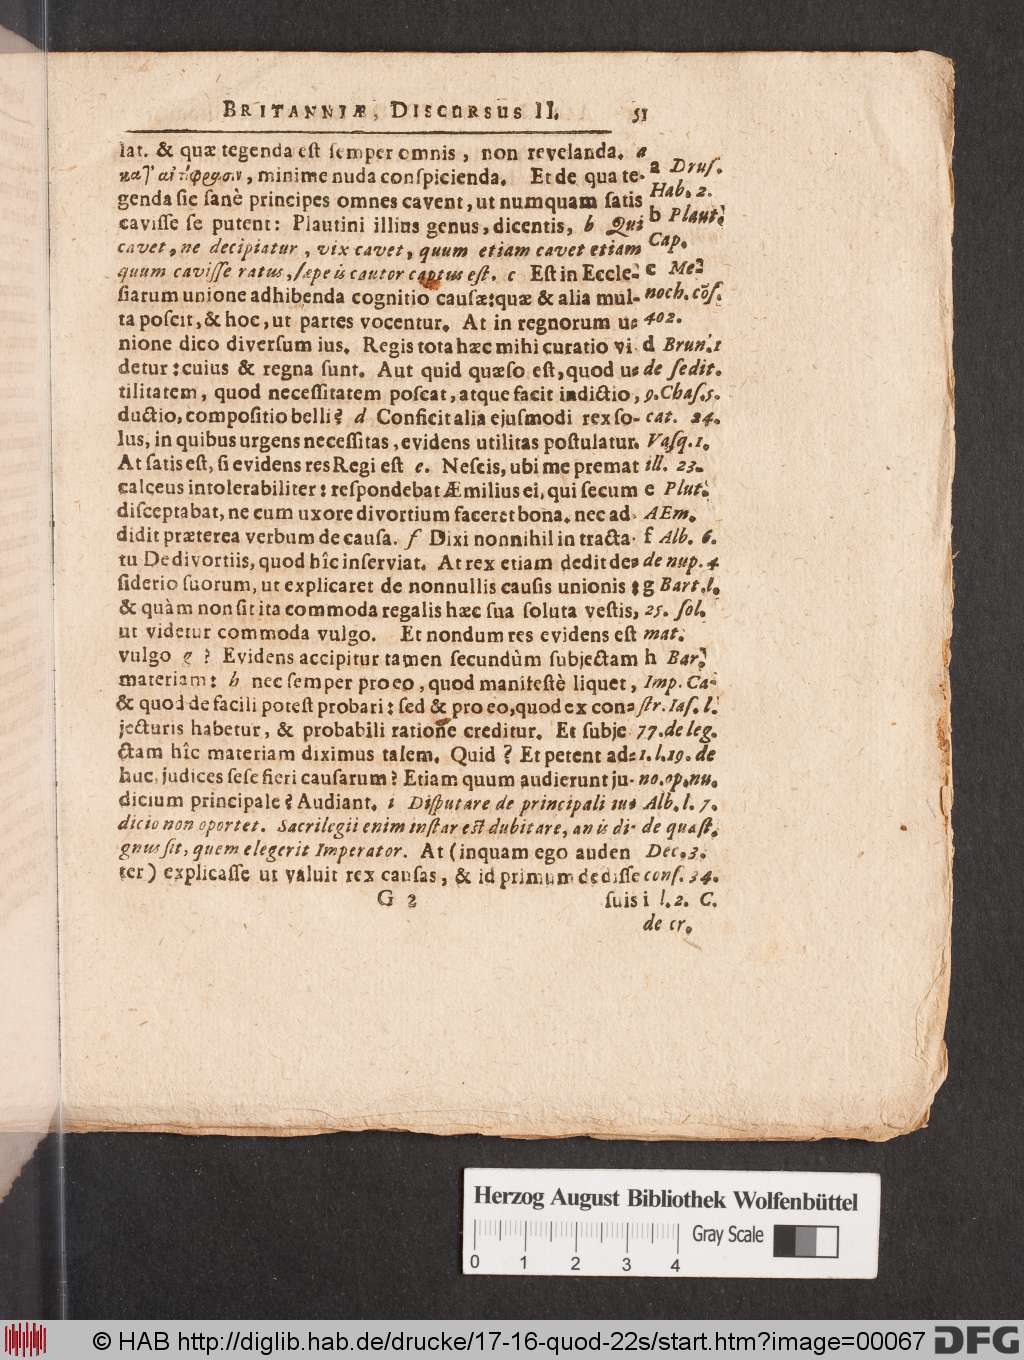 BRITANNIÆ, DISCURSUS II. 51
lat. & quæ tegenda est semper omnis, non revelanda. a
κατ' αἰ φρασιν, minime nuda conspicienda. Et de qua te-
genda sic sanè principes omnes cavent, ut numquam satis
cavisse se putent: Plautini illius genus, dicentis, b Qui
cavet, ne decipiatur, vix cavet, quum etiam cavet etiam
quum cavisse ratus, sæpe is cautor captus est. c Est in Eccle-
siarum unione adhibenda cognitio causæ: quæ & alia mul-
ta poscit, & hoc, ut partes vocentur. At in regnorum u-
nione dico diversum ius. Regis tota hæc mihi curatio vi
detur: cuius & regna sunt. Aut quid quæso est, quod u-
tilitatem, quod necessitatem poscat, atque facit indictio,
ductio, compositio belli? d Conficit alia ejusmodi rex so-
lus, in quibus urgens necessitas, evidens utilitas postulatur.
At satis est, si evidens res Regi est e. Nescis, ubi me premat
calceus intolerabiliter: respondebat Æmilius ei, qui secum
disceptabat, ne cum uxore divortium faceret bona. nec ad-
didit præterea verbum de causa. f Dixi nonnihil in tracta-
tu De divortiis, quod hîc inserviat. At rex etiam dedit de-
siderio suorum, ut explicaret de nonnullis causis unionis:
& quàm non sit ita commoda regalis hæc sua soluta vestis,
ut videtur commoda vulgo. Et nondum res evidens est
vulgo g? Evidens accipitur tamen secundùm subjectam
materiam: h nec semper pro eo, quod manifestè liquet,
& quod de facili potest probari: sed & pro eo, quod ex con-
jecturis habetur, & probabili ratione creditur. Et subje
ctam hîc materiam diximus talem. Quid? Et petent ad-
huc, judices sese fieri causarum? Etiam quum audierunt ju-
dicium principale? Audiant. i Disputare de principali iu-
dicio non oportet. Sacrilegii enim instar est dubitare, an is di-
gnus sit, quem elegerit Imperator. At (inquam ego auden
ter) explicasse ut valuit rex causas, & id primum dedisse
G 2 suis
a Drus.
Hab. 2.
b Plaut.
Cap.
c Me-
noch. cōs.
402.
d Brun. 1
de sedit.
9. Chas. 5.
cat. 24.
Vasq. 1.
ill. 23.
e Plut.
AEm.
f Alb. 6.
de nup. 4
g Bart. l.
25. sol.
mat.
h Bar.
Imp. Ca-
str. Ias. l.
77. de leg.
1. l. 19. de
no. op. nu.
Alb. l. 7.
de quæst.
Dec. 3.
cons. 34.
i l. 2. C.
de cr.
Herzog August Bibliothek Wolfenbüttel
Gray Scale
0 1 2 3 4
© HAB http://diglib.hab.de/drucke/17-16-quod-22s/start.htm?image=00067
DFG